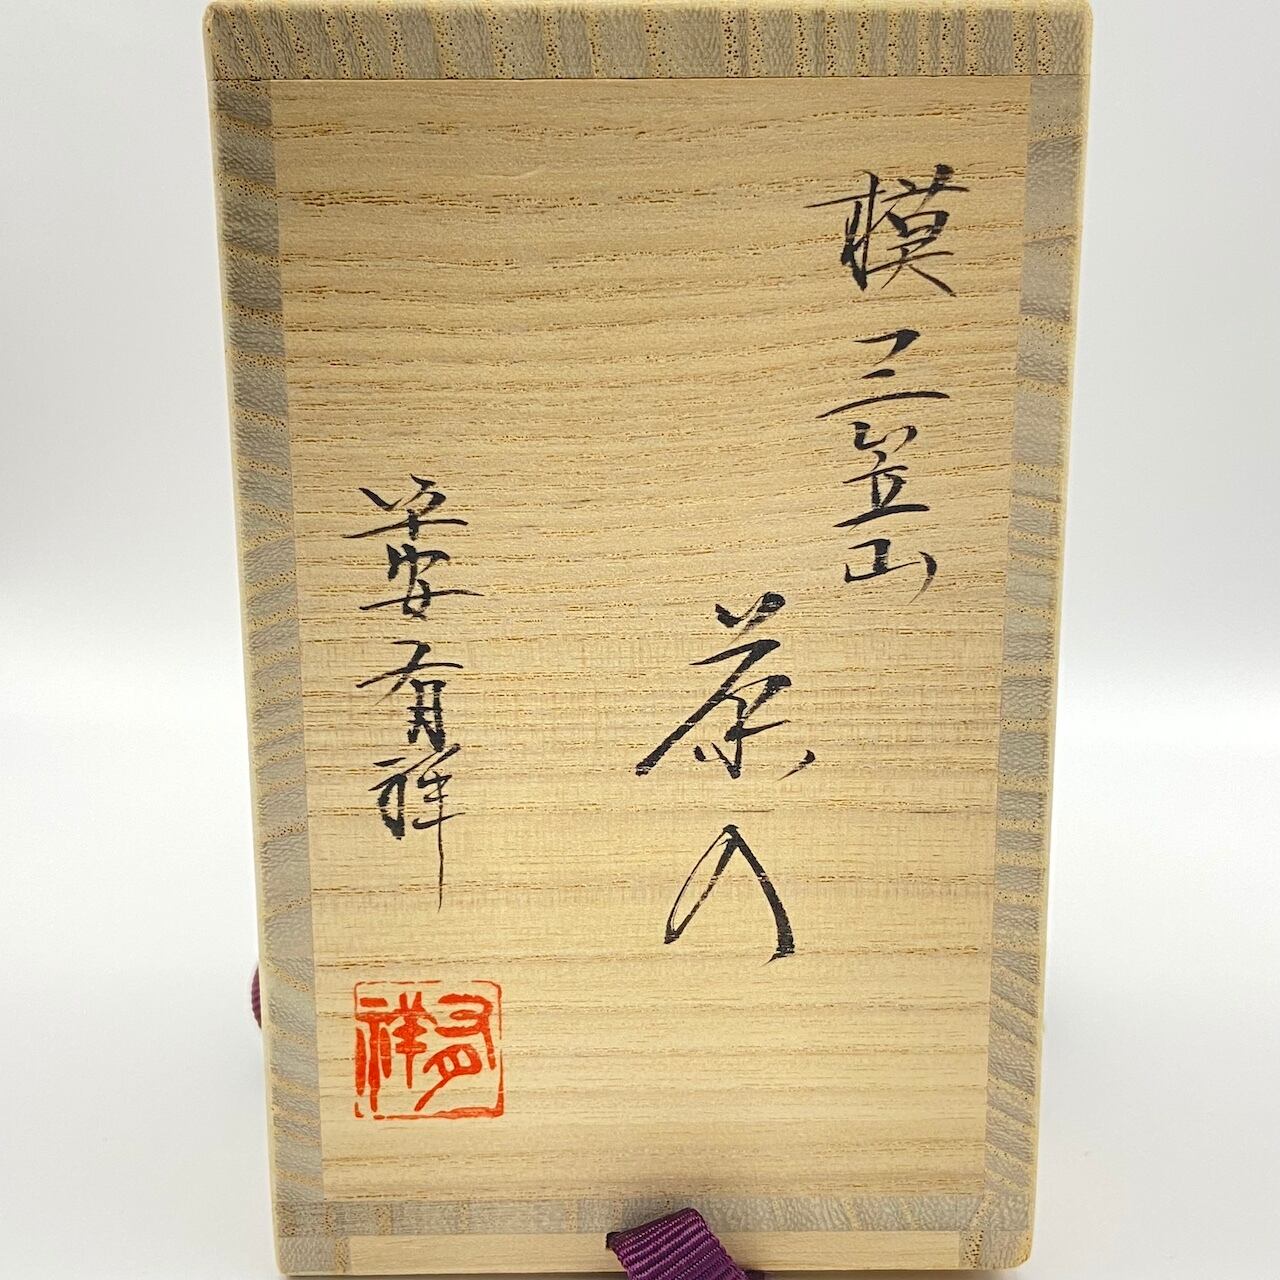 模 三笠山
茶入
平安 有祥
有祥